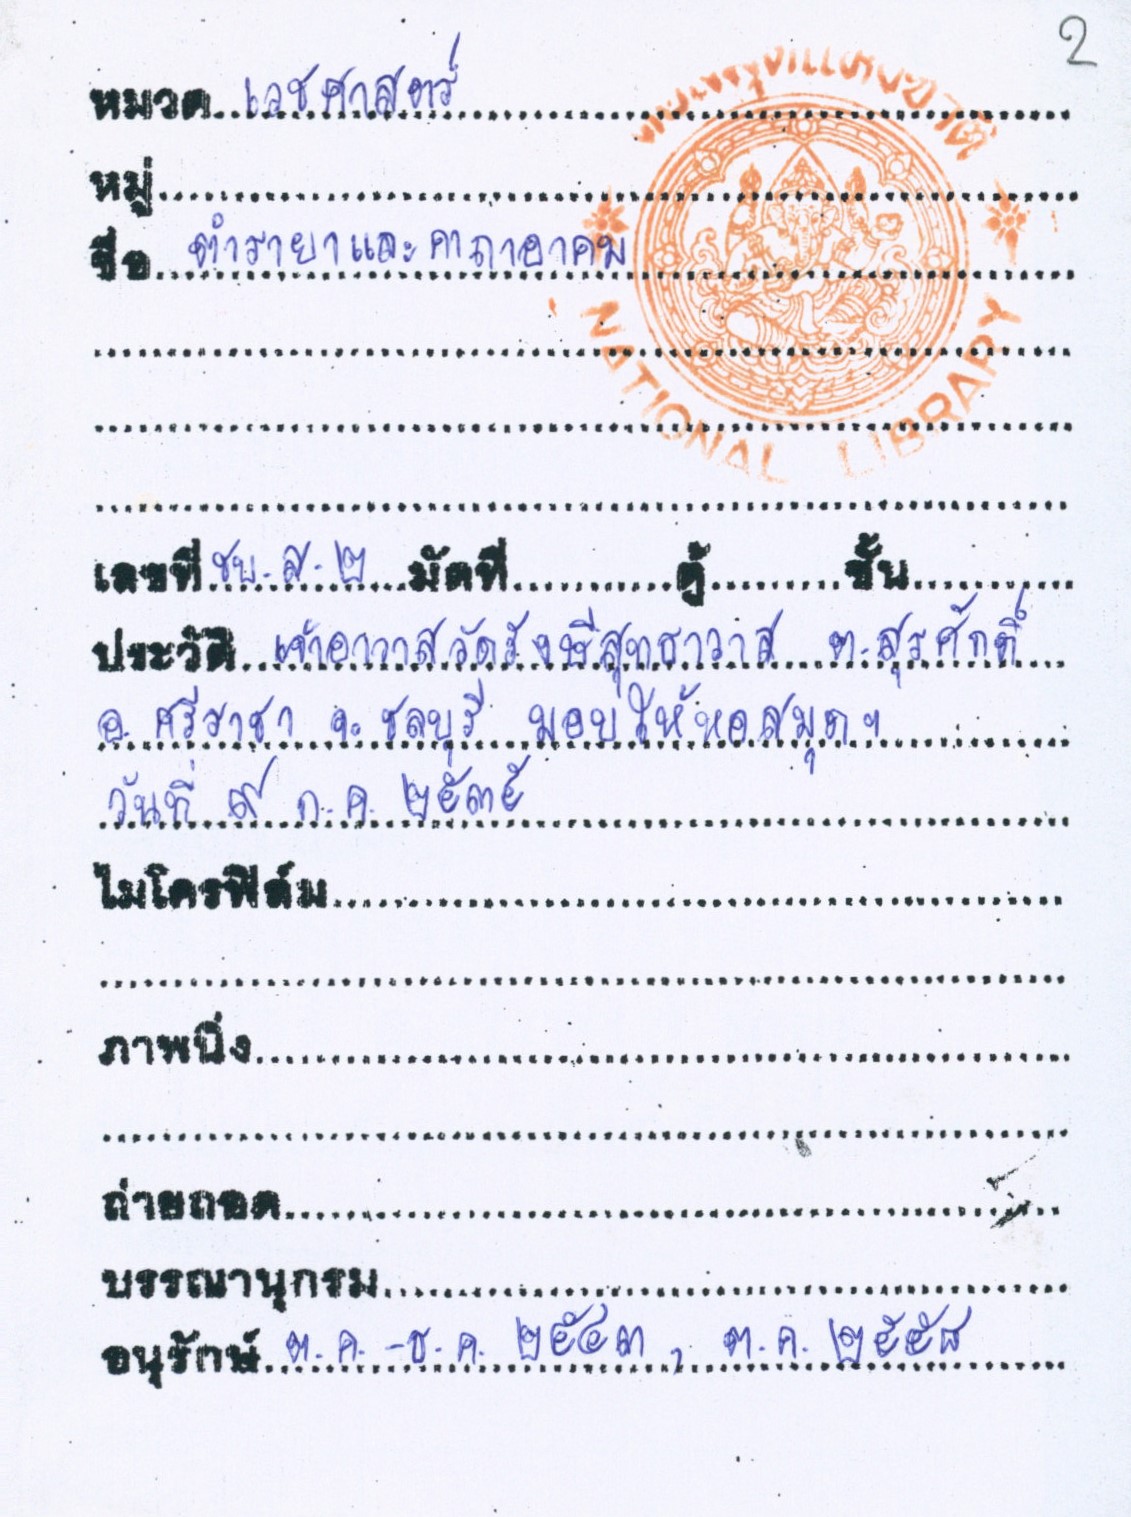 2
หอสมุดแห่งชาติ
NATIONAL LIBRARY
หมวด เวชศาสตร์
หมู่
ชื่อ ตำรายาและคาถาอาคม
เลขที่ ชบ.ส.๒ มัดที่ ตู้ ชั้น
ประวัติ เจ้าอาวาสวัดรังษีสุทธาวาส ต.สุรศักดิ์
อ.ศรีราชา จ.ชลบุรี มอบให้หอสมุดฯ
วันที่ ๙ ก.ค. ๒๕๓๕
ไมโครฟิล์ม
ภาพนิ่ง
ถ่ายถอด
บรรณานุกรม
อนุรักษ์ ต.ค.-ธ.ค. ๒๕๔๓, ต.ค. ๒๕๕๘